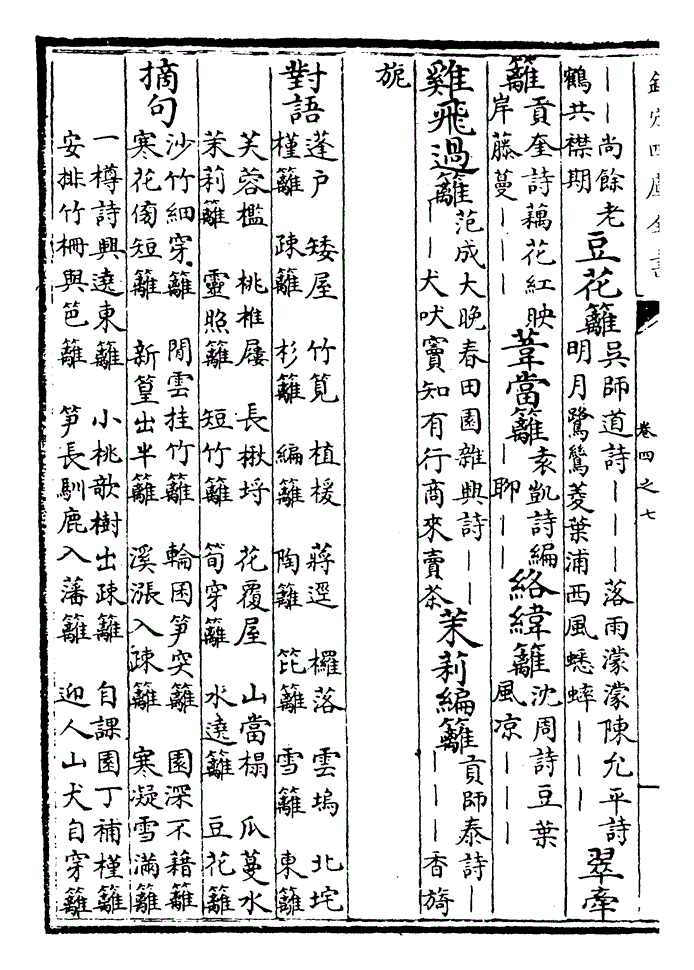 欽定四庫全書
卷四之七
一
———尚餘老
鶴共襟期
豆花籬
吳師道詩———落雨濛濛陳允平詩
明月鷺鷥菱葉浦西風蟋蟀———
翠牽
籬
貢奎詩藕花紅映
岸藤蔓———
葦當籬
袁凱詩編
—聊——
絡緯籬
沈周詩豆葉
風凉———
雞飛過籬
范成大晚春田園雜興詩——
——犬吠竇知有行商來賣茶
茉莉編籬
貢師泰詩—
———香旖
旎
對語
蓬戶 矮屋 竹筧 植援 蔣逕 欏落 雲塢 北垞
槿籬 疎籬 杉籬 編籬 陶籬 笓籬 雪籬 東籬
芙蓉檻 桃椎屨 長楸埒 花覆屋 山當榻 瓜蔓水
茉莉籬 靈照籬 短竹籬 筍穿籬 水遶籬 豆花籬
摘句
沙竹細穿籬 閒雲挂竹籬 輪囷笋突籬 園深不藉籬
寒花傍短籬 新篁出半籬 溪漲入疎籬 寒凝雪滿籬
一樽詩興遶東籬 小桃欹樹出疎籬 自課園丁補槿籬
安排竹柵與笆籬 笋長馴鹿入藩籬 迎人山犬自穿籬